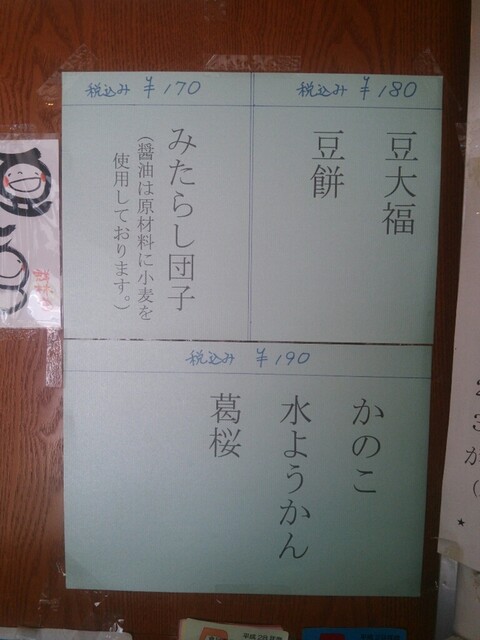 税込み ¥180
豆大福
豆餅
税込み ¥170
みたらし団子
(醤油は原材料に小麦を
使用しております。)
税込み ¥190
かのこ
水ようかん
葛桜